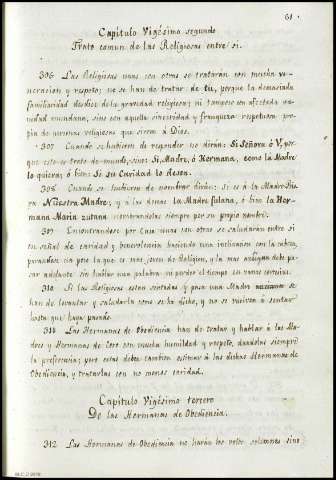 61.
Capítulo Vigésimo segundo
Trato comun de las Religiosas entre si.
306 Las Religiosas unas con otras se tratarán con mucha ve-
neracion y respeto; no se han de tratar de tu, porque la demasiada
familiaridad desdice de la gravedad religiosa; ni tampoco con afectada va-
nidad mundana, sino con aquella sinceridad y franqueza respetuosa pro-
pia de personas religiosas que sirven á Dios.
307 Cuando se hubieren de responder no dirán: Si Señora ó V. por-
que esto es trato de mundo, sino: Si, Madre, ó Hermana, como la Madre
lo quiera; ó bien: Si su Caridad lo desea.
308 Cuando se hubieren de nombrar dirán: si es á la Madre Prio-
ra Nuestra Madre, y á las demas la Madre fulana, ó bien la Her-
mana Maria zutana nombrandolas siempre por su propio nombre.
309 Encontrandose por Casa unas con otras se saludarán entre si
en señal de caridad y benevolencia haciendo una inclinacion con la cabeza,
parandose un poco la que es mas joven de Religion, y la mas antigua debe pa-
sar adelante sin hablar una palabra ni perder el tiempo en vanas cortesias.
310 Si las Religiosas estan sentadas y pasa una Madre se
han de levantar y saludarla como se ha dicho, y no se vuelvan á sentar
hasta que haya pasado.
311 Las Hermanas de Obediencia han de tratar y hablar á las Ma-
dres y Hermanas de Coro con mucha humildad y respeto, dandoles siempre
la preferencia; pero estas deben tambien estimar á las dichas Hermanas de
Obediencia, y tratarlas con no menos caridad.
Capítulo Vigésimo tercero
De las Hermanas de Obediencia.
312 Las Hermanas de Obediencia no harán los votos solemnes sino